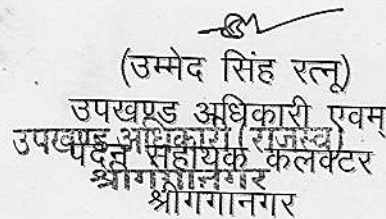 (उम्मेद सिंह रत्नू)
उपखण्ड अधिकारी एवम्
उपखण्ड अधिकारी (राजस्व)
पदेन सहायक कलक्टर
श्रीगंगानगर
श्रीगंगानगर